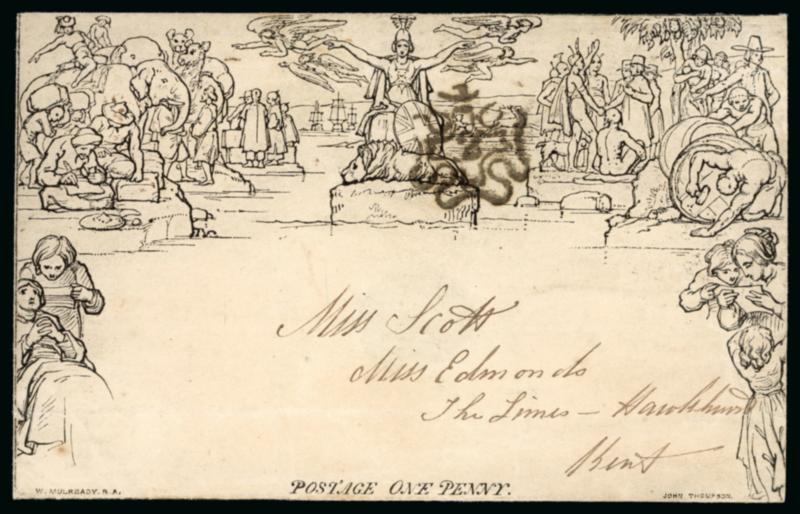 Miss Scott
Miss Edmonds
The Limes – Hawkhurst
Kent
W. MULREADY. R.A.
POSTAGE ONE PENNY.
JOHN THOMPSON.